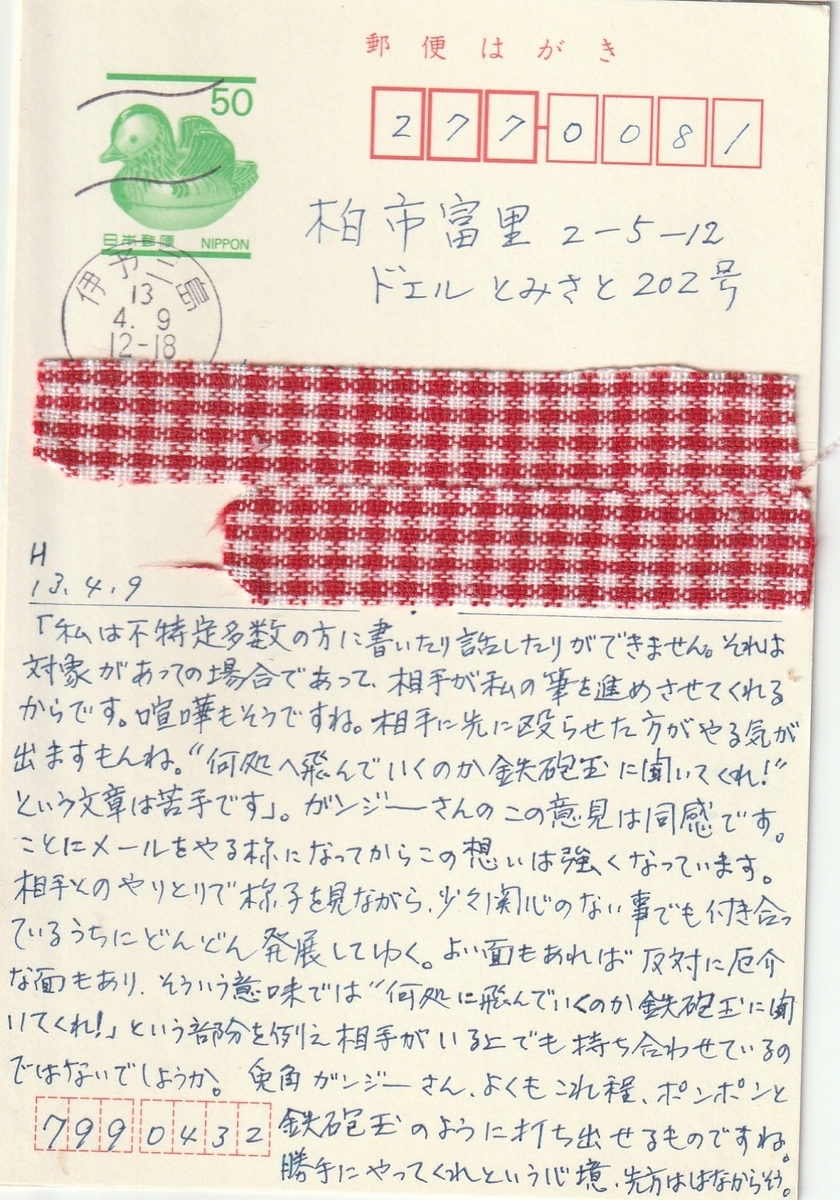 郵便はがき
50
日本郵便 NIPPON
277-0081
柏市富里 2-5-12
ドエル とみさと 202号
伊予三島
13
4. 9
12-18
H
13.4.9
「私は不特定多数の方に書いたり話したりができません。それは
対象があっての場合であって、相手が私の筆を進めさせてくれる
からです。喧嘩もそうですね。相手に先に殴らせた方がやる気が
出ますもんね。“何処へ飛んでいくのか鉄砲玉に聞いてくれ!”
という文章は苦手です」。ガンジーさんのこの意見は同感です。
ことにメールをやる様になってからこの想いは強くなっています。
相手とのやりとりで様子を見ながら、少々関心のない事でも付き合っ
ているうちにどんどん発展してゆく。よい面もあれば反対に厄介
な面もあり、そういう意味では“何処に飛んでいくのか鉄砲玉に聞
いてくれ!」という部分を例え相手がいる上でも持ち合わせているの
ではないでしょうか。兎角ガンジーさん、よくもこれ程、ポンポンと
鉄砲玉のように打ち出せるものですね。
勝手にやってくれという心境、先方ははなからそう。
7990432